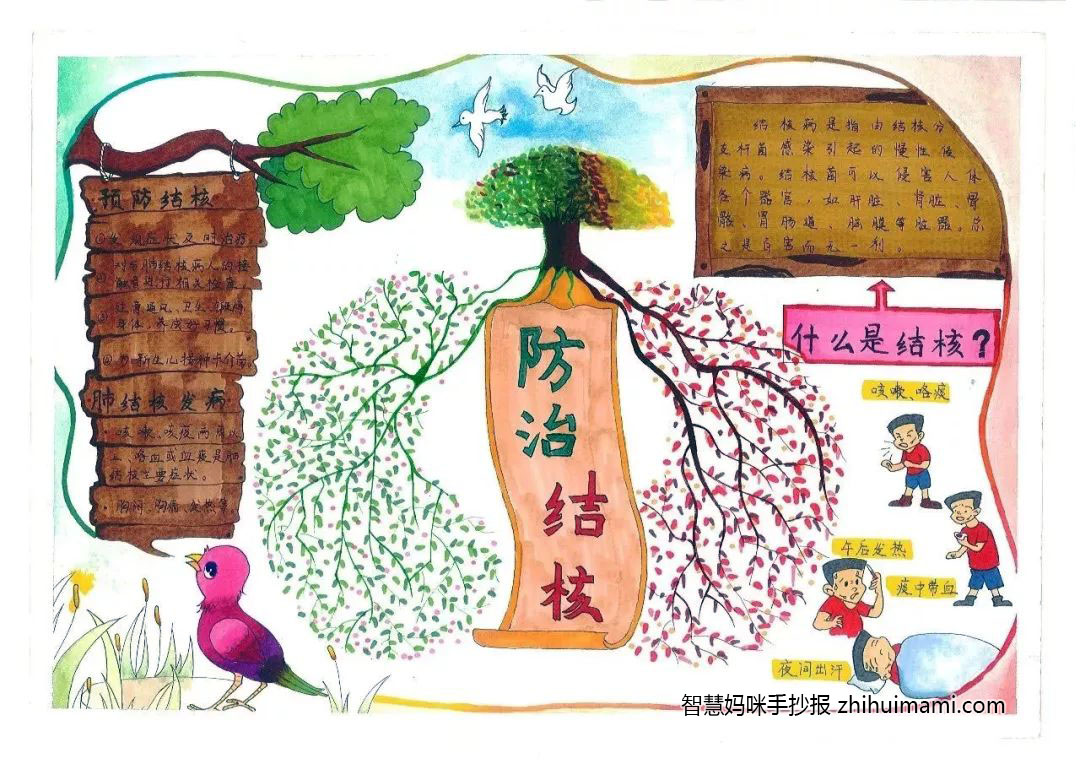 预防结核
对与肺结核病人的接
触者进行相关检查。
注意通风、卫生、锻炼
身体,养成好习惯。
肺结核发病
·咳嗽、咳痰两周以
上、咯血或血痰是肺
结核主要症状。
·胸闷、胸痛、发热等
防
治
结
核
结核病是指由结核分
支杆菌感染引起的慢性传
染病。结核菌可以侵害人体
各个器官,如肝脏、肾脏、骨
骼、胃肠道、脑膜等脏器。总
之是百害而无一利。
什么是结核?
咳嗽、咯痰
午后发热
痰中带血
夜间出汗
智慧妈咪手抄报 zhihuimami.com